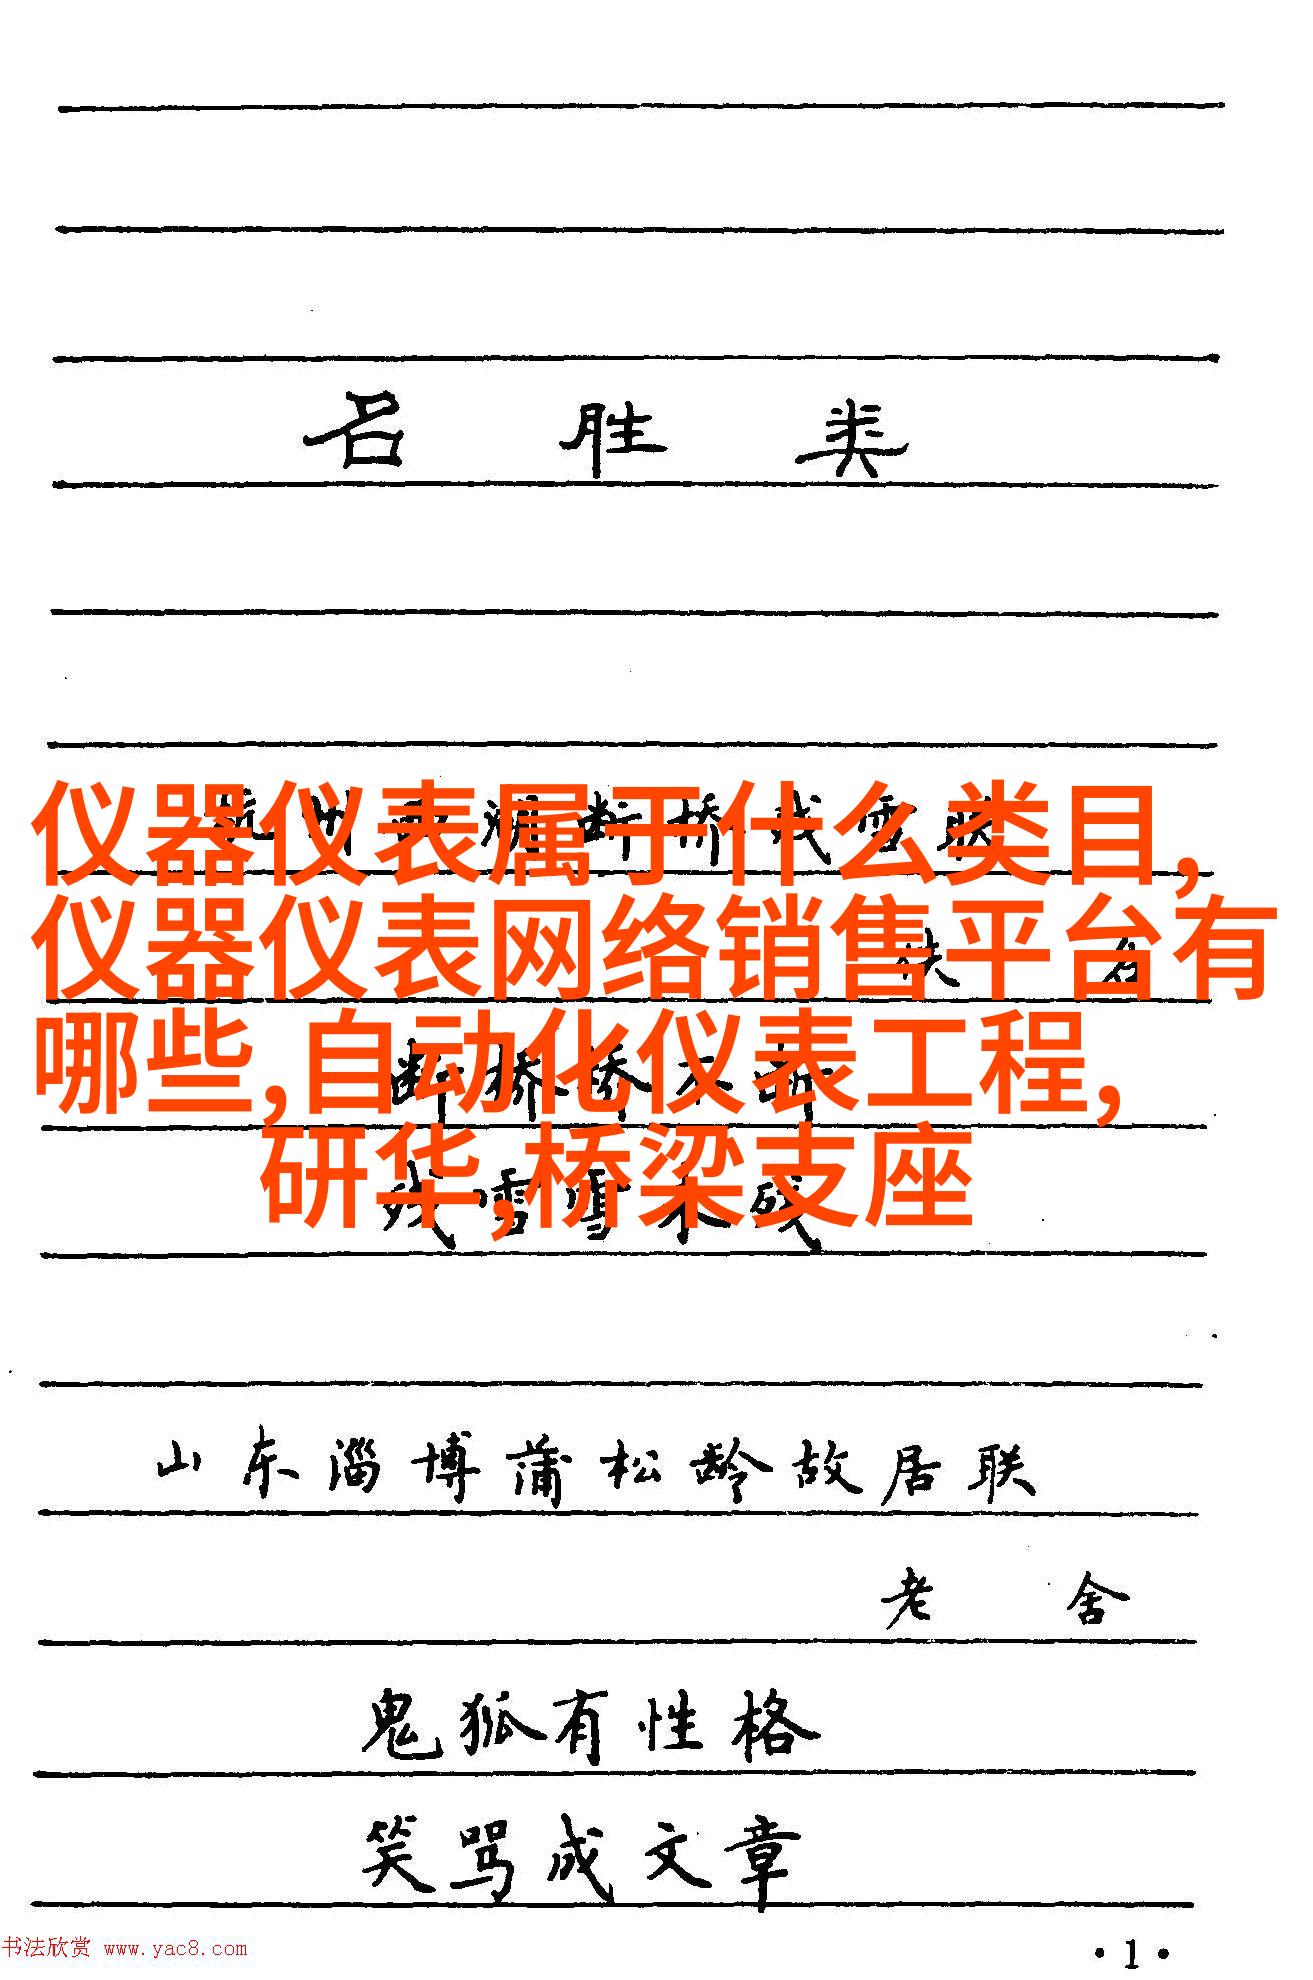 名胜类
杭州西湖断桥残雪联
仪器仪表属于什么类目,
仪器仪表网络销售平台有
哪些,自动化仪表工程,
研华,桥梁支座
断桥桥不断
残雪雪未残
山东淄博蒲松龄故居联
老舍
鬼狐有性格
笑骂成文章
书法欣赏 www.yac8.com
·1·